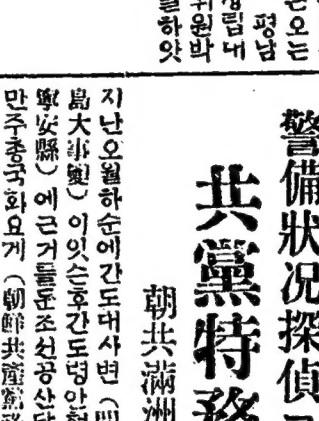 오는
평남
립내
위원박
하앗
警備狀况探偵
共黨特務
朝共滿洲
지난오월하순에간도대사변 (間
島大事變) 이잇슨후간도녕안현
寧安縣) 에근거를둔조선공산당
만주총국화요게 (朝鮮共產黨